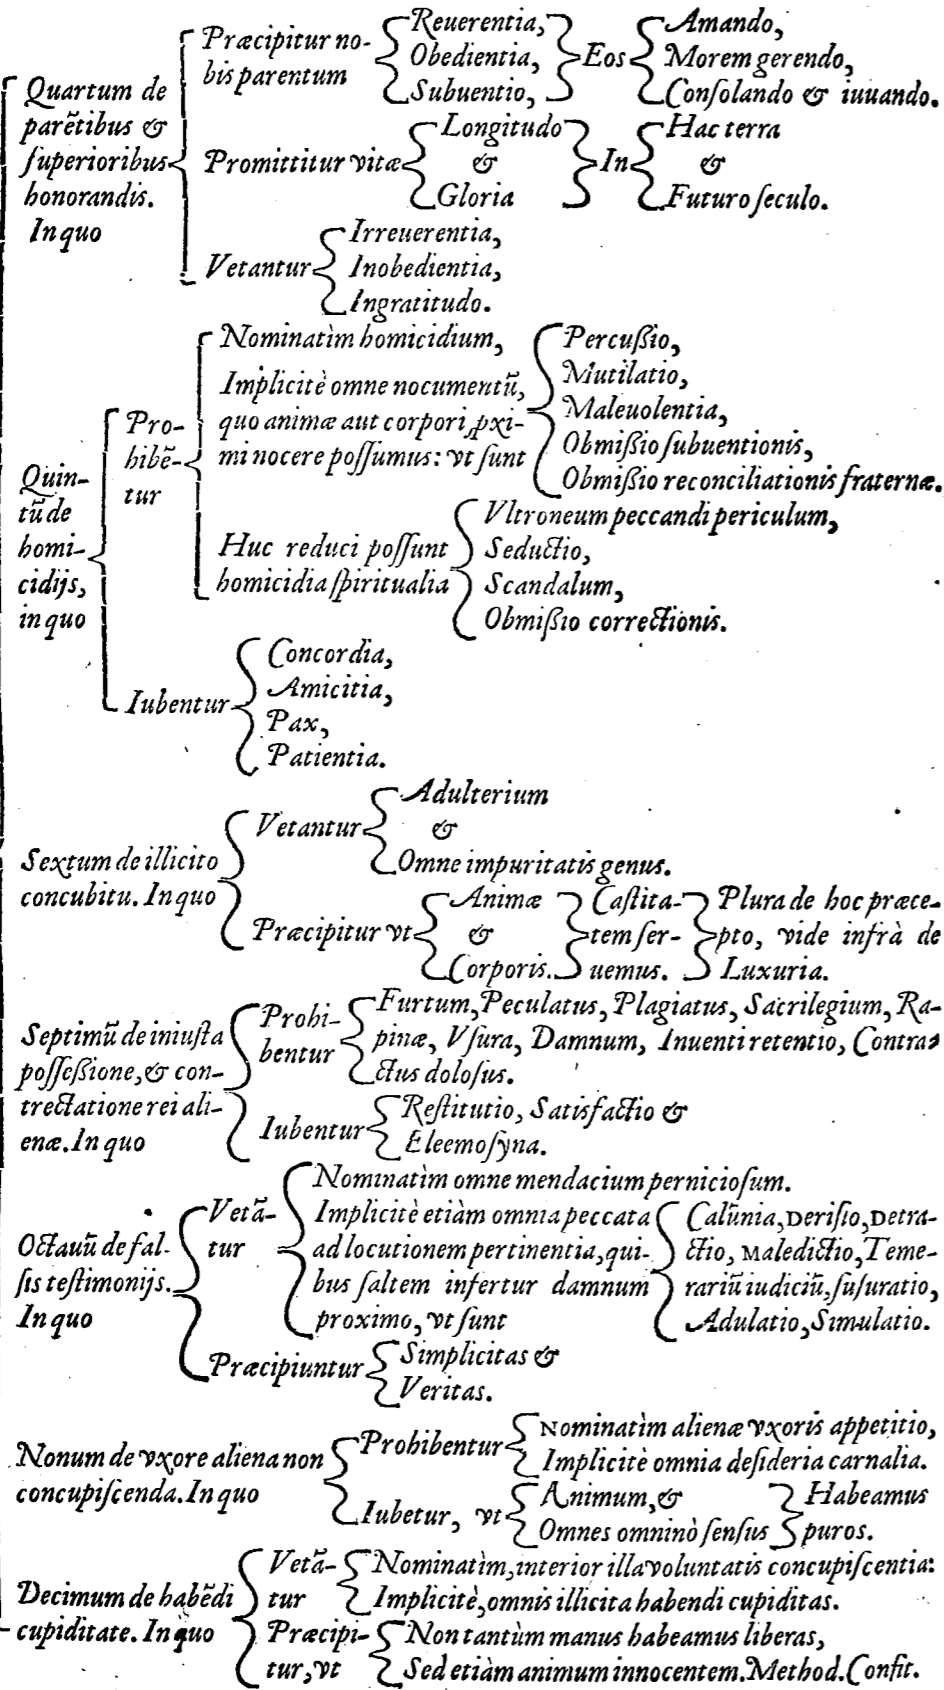 Quartum de
parētibus &
ſuperioribus
honorandis.
In quo
Præcipitur no-
bis parentum
Reuerentia,
Obedientia,
Subuentio,
Eos
Amando,
Morem gerendo,
Conſolando & iuuando.
Promittitur vitæ
Longitudo
&
Gloria
In
Hac terra
&
Futuro ſeculo.
Vetantur
Irreuerentia,
Inobedientia,
Ingratitudo.
Quin-
tū de
homi-
cidijs,
in quo
Pro-
hibē-
tur
Nominatìm homicidium,
Implicitè omne nocumentū,
quo animæ aut corpori ꝓxi-
mi nocere poſſumus: vt ſunt
Percuſſio,
Mutilatio,
Maleuolentia,
Obmiſſio ſubuentionis,
Obmiſſio reconciliationis fraternæ.
Huc reduci poſſunt
homicidia ſpiritualia
Vltroneum peccandi periculum,
Seductio,
Scandalum,
Obmiſſio correctionis.
Iubentur
Concordia,
Amicitia,
Pax,
Patientia.
Sextum de illicito
concubitu. In quo
Vetantur
Adulterium
&
Omne impuritatis genus.
Præcipitur vt
Animæ
&
Corporis.
Caſtita-
tem ſer-
uemus.
Plura de hoc præce-
pto, vide infrà de
Luxuria.
Septimū de iniuſta
poſſeſſione, & con-
trectatione rei ali-
enæ. In quo
Prohi-
bentur
Furtum, Peculatus, Plagiatus, Sacrilegium, Ra-
pinæ, Vſura, Damnum, Inuenti retentio, Contra-
ctus doloſus.
Iubentur
Reſtitutio, Satisfactio &
Eleemoſyna.
Octauū de fal-
ſis teſtimonijs.
In quo
Vetā-
tur
Nominatìm omne mendacium pernicioſum.
Implicitè etiàm omnia peccata
ad locutionem pertinentia, qui-
bus ſaltem infertur damnum
proximo, vt ſunt
Calūnia, Deriſio, Detra-
ctio, Maledictio, Teme-
rariū iudiciū, ſuſuratio,
Adulatio, Simulatio.
Præcipiuntur
Simplicitas &
Veritas.
Nonum de vxore aliena non
concupiſcenda. In quo
Prohibentur
Nominatìm alienæ vxoris appetitio,
Implicitè omnia deſideria carnalia.
Iubetur, vt
Animum, &
Omnes omninò ſenſus
Habeamus
puros.
Decimum de habēdi
cupiditate. In quo
Vetā-
tur
Nominatìm, interior illa voluntatis concupiſcentia:
Implicitè, omnis illicita habendi cupiditas.
Præcipi-
tur, vt
Non tantùm manus habeamus liberas,
Sed etiàm animum innocentem. Method. Confit.